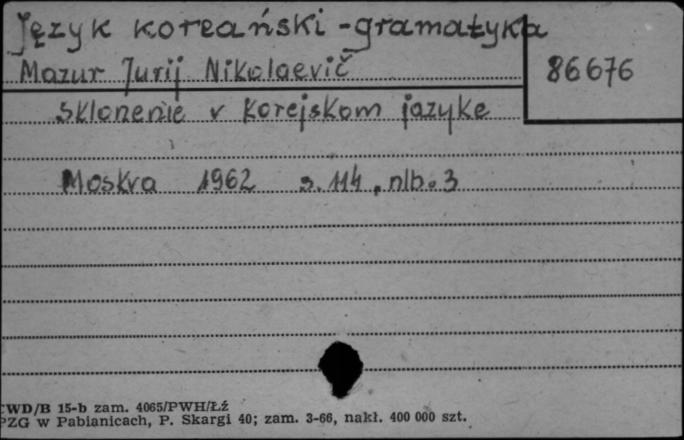 Język koreański - gramatyka
Mazur Jurij Nikolaevič
86676
Sklonenie v korejskom jazyke
Moskva 1962 s. 114, nlb. 3
CWD/B 15-b zam. 4065/PWH/Łź
PZG w Pabianicach, P. Skargi 40; zam. 3-66, nakł. 400 000 szt.